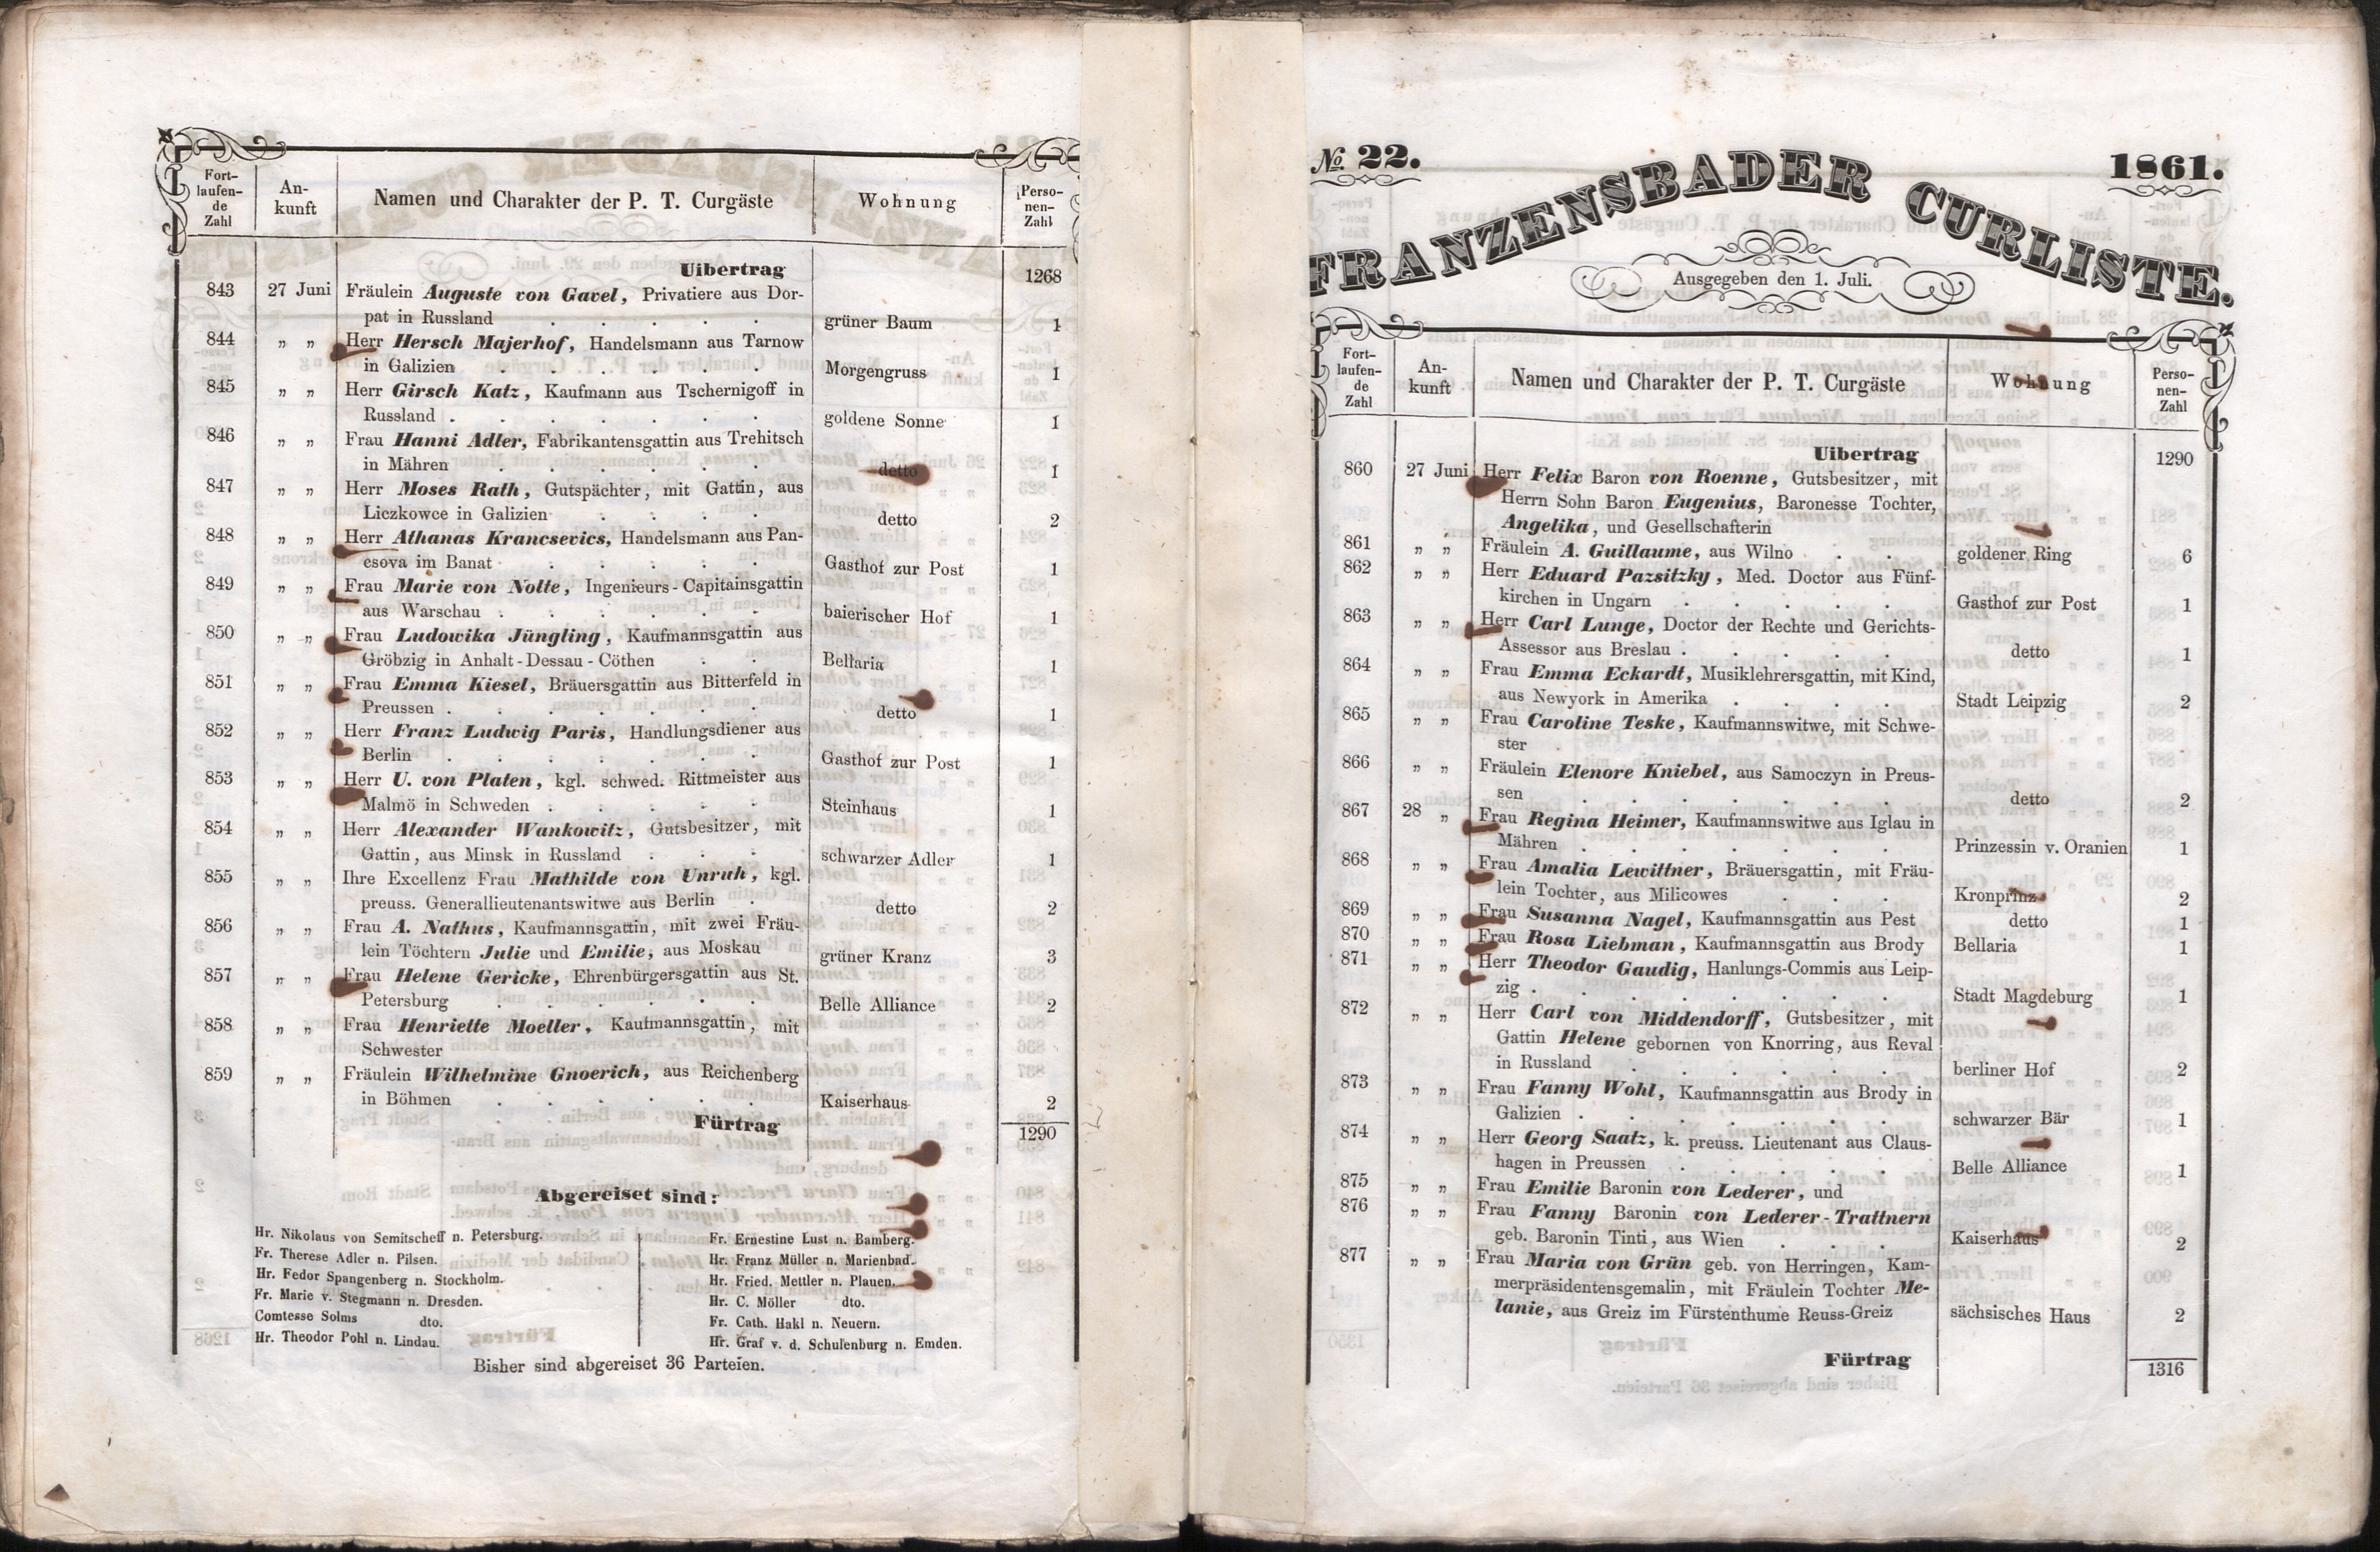 Fort-
laufen-
de
Zahl
An-
kunft
Namen und Charakter der P. T. Curgäste
Wohnung
Perso-
nen-
Zahl
Uibertrag 1268
843 27 Juni Fräulein Auguste von Gavel, Privatiere aus Dor-
pat in Russland . . . . . grüner Baum 1
844 „ „ Herr Hersch Majerhof, Handelsmann aus Tarnow
in Galizien . . . . . Morgengruss 1
845 „ „ Herr Girsch Katz, Kaufmann aus Tschernigoff in
Russland . . . . . . goldene Sonne 1
846 „ „ Frau Hanni Adler, Fabrikantensgattin aus Trehitsch
in Mähren . . . . . . detto 1
847 „ „ Herr Moses Rath, Gutspächter, mit Gattin, aus
Liczkowce in Galizien . . . . detto 2
848 „ „ Herr Athanas Krancsevics, Handelsmann aus Pan-
csova im Banat . . . . . Gasthof zur Post 1
849 „ „ Frau Marie von Nolte, Ingenieurs-Capitainsgattin
aus Warschau . . . . . . baierischer Hof 1
850 „ „ Frau Ludowika Jüngling, Kaufmannsgattin aus
Gröbzig in Anhalt-Dessau-Cöthen . . Bellaria 1
851 „ „ Frau Emma Kiesel, Bräuersgattin aus Bitterfeld in
Preussen . . . . . . . detto 1
852 „ „ Herr Franz Ludwig Paris, Handlungsdiener aus
Berlin . . . . . . . Gasthof zur Post 1
853 „ „ Herr U. von Platen, kgl. schwed. Rittmeister aus
Malmö in Schweden . . . . . Steinhaus 1
854 „ „ Herr Alexander Wankowitz, Gutsbesitzer, mit
Gattin, aus Minsk in Russland . . . schwarzer Adler 1
855 „ „ Ihre Excellenz Frau Mathilde von Unruh, kgl.
preuss. Generallieutenantswitwe aus Berlin . detto 2
856 „ „ Frau A. Nathus, Kaufmannsgattin, mit zwei Fräu-
lein Töchtern Julie und Emilie, aus Moskau grüner Kranz 3
857 „ „ Frau Helene Gericke, Ehrenbürgersgattin aus St.
Petersburg . . . . . . Belle Alliance 2
858 „ „ Frau Henriette Moeller, Kaufmannsgattin, mit
Schwester
859 „ „ Fräulein Wilhelmine Gnoerich, aus Reichenberg
in Böhmen . . . . . . Kaiserhaus 2
Fürtrag 1290
Abgereiset sind:
Hr. Nikolaus von Semitscheff n. Petersburg.
Fr. Therese Adler n. Pilsen.
Hr. Fedor Spangenberg n. Stockholm.
Fr. Marie v. Stegmann n. Dresden.
Comtesse Solms dto.
Hr. Theodor Pohl n. Lindau.
Fr. Ernestine Lust n. Bamberg.
Hr. Franz Müller n. Marienbad.
Hr. Fried. Mettler n. Plauen.
Hr. C. Möller dto.
Fr. Cath. Hakl n. Neuern.
Hr. Graf v. d. Schulenburg n. Emden.
Bisher sind abgereiset 36 Parteien.
№ 22. 1861.
FRANZENSBADER CURLISTE.
Ausgegeben den 1. Juli.
Fort-
laufen-
de
Zahl
An-
kunft
Namen und Charakter der P. T. Curgäste
Wohnung
Perso-
nen-
Zahl
Uibertrag 1290
860 27 Juni Herr Felix Baron von Roenne, Gutsbesitzer, mit
Herrn Sohn Baron Eugenius, Baronesse Tochter,
Angelika, und Gesellschafterin
861 „ „ Fräulein A. Guillaume, aus Wilno . . goldener Ring 6
862 „ „ Herr Eduard Pazsitzky, Med. Doctor aus Fünf-
kirchen in Ungarn . . . . . Gasthof zur Post 1
863 „ „ Herr Carl Lunge, Doctor der Rechte und Gerichts-
Assessor aus Breslau . . . . . detto 1
864 „ „ Frau Emma Eckardt, Musiklehrersgattin, mit Kind,
aus Newyork in Amerika . . . . Stadt Leipzig 2
865 „ „ Frau Caroline Teske, Kaufmannswitwe, mit Schwe-
ster
866 „ „ Fräulein Elenore Kniebel, aus Samoczyn in Preus-
sen . . . . . . . detto 2
867 28 „ Frau Regina Heimer, Kaufmannswitwe aus Iglau in
Mähren . . . . . . . Prinzessin v. Oranien 1
868 „ „ Frau Amalia Lewittner, Bräuersgattin, mit Fräu-
lein Tochter, aus Milicowes . . . Kronprinz 2
869 „ „ Frau Susanna Nagel, Kaufmannsgattin aus Pest detto 1
870 „ „ Frau Rosa Liebman, Kaufmannsgattin aus Brody Bellaria 1
871 „ „ Herr Theodor Gaudig, Hanlungs-Commis aus Leip-
zig . . . . . . . . Stadt Magdeburg 1
872 „ „ Herr Carl von Middendorff, Gutsbesitzer, mit
Gattin Helene gebornen von Knorring, aus Reval
in Russland . . . . . . berliner Hof 2
873 „ „ Frau Fanny Wohl, Kaufmannsgattin aus Brody in
Galizien . . . . . . . schwarzer Bär 1
874 „ „ Herr Georg Saatz, k. preuss. Lieutenant aus Claus-
hagen in Preussen . . . . . Belle Alliance 1
875 „ „ Frau Emilie Baronin von Lederer, und
876 „ „ Frau Fanny Baronin von Lederer-Trattnern
geb. Baronin Tinti, aus Wien . . . Kaiserhaus 2
877 „ „ Frau Maria von Grün geb. von Herringen, Kam-
merpräsidentensgemalin, mit Fräulein Tochter Me-
lanie, aus Greiz im Fürstenthume Reuss-Greiz sächsisches Haus 2
Fürtrag 1316